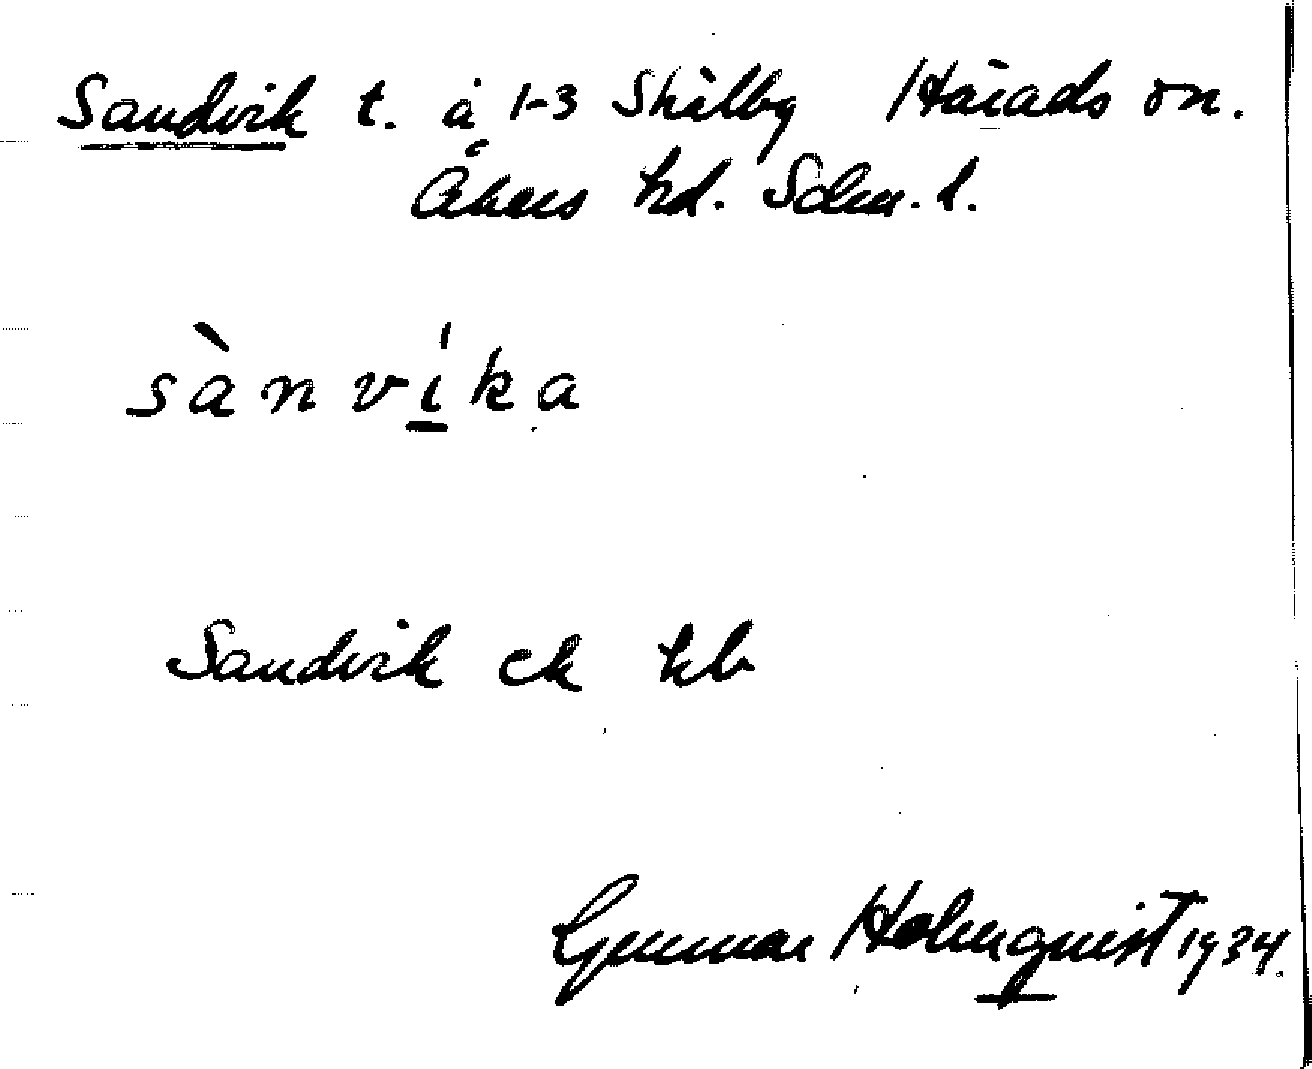 Sandvik t. å 1-3 Skälby Härads sn.
Åkers hd. Sdm. l.
sànvíka
Sandvik ek kb
Gunnar Holmquist 1934.